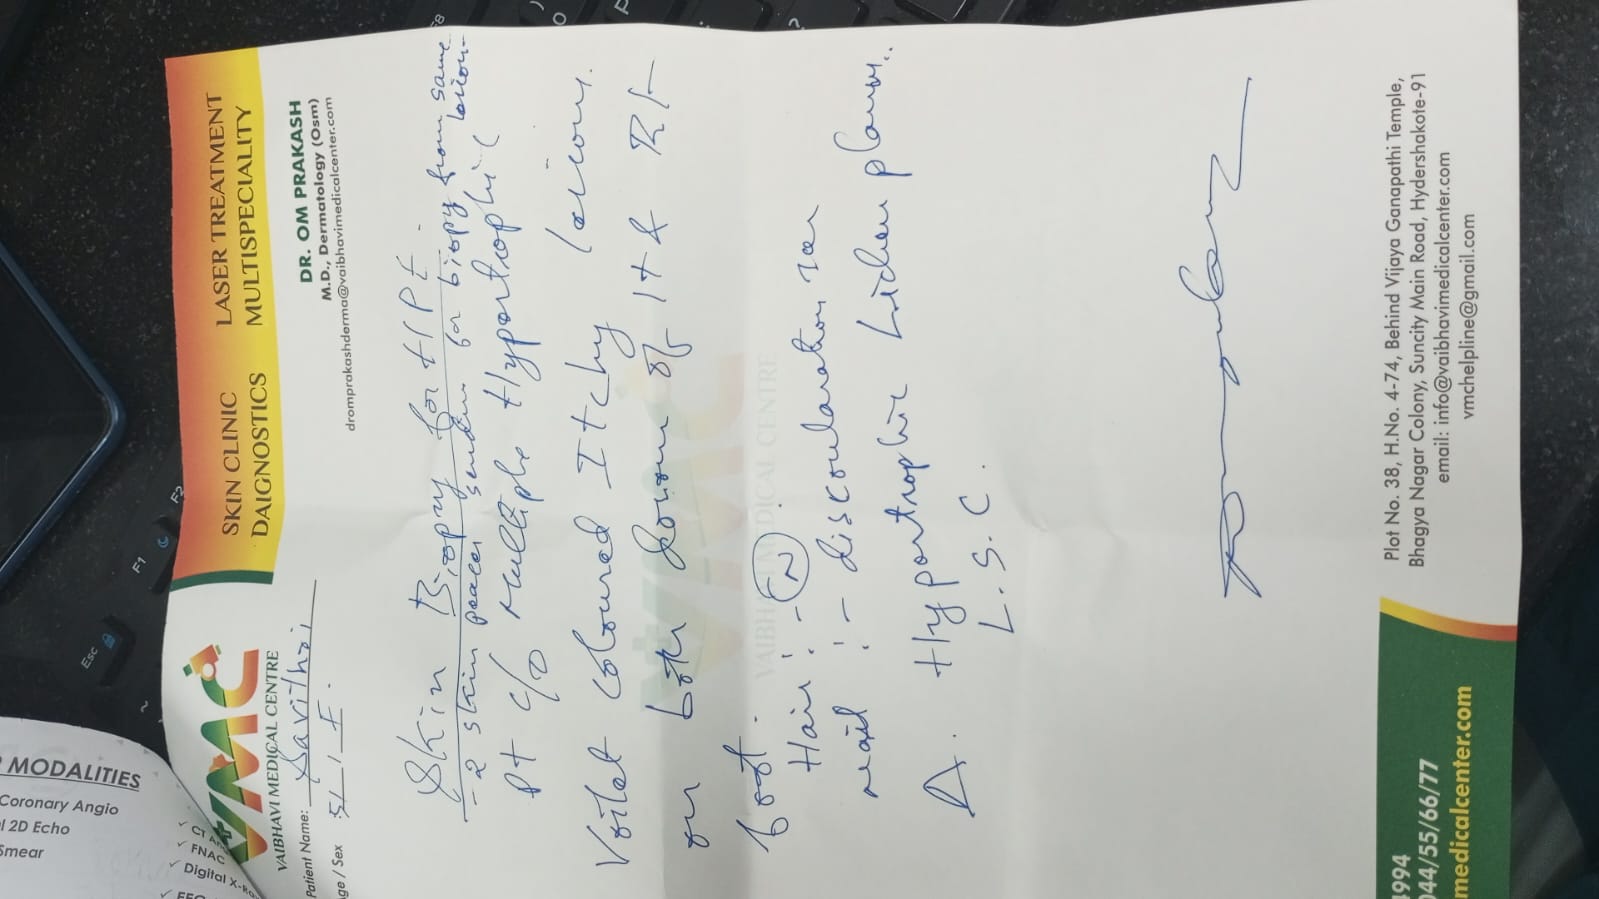 SKIN CLINIC LASER TREATMENT
DAIGNOSTICS MULTISPECIALITY
VMC
VAIBHAVI MEDICAL CENTRE
DR. OM PRAKASH
M.D., Dermatology (Osm)
dromprakashderma@vaibhavimedicalcenter.com
Patient Name: Savithri
ge / Sex 51 / F.
Skin Biopsy for HPE
- 2 skin peaces for biopsy from same lesion
Pt c/o Multiple Hypertrophic
Voilet coloured Itchy lesions.
on both of Lt & Rt
foot.
Hair :- N
:- discoularation
Δ. Hypertrophic Lichen planus.
L.S.C.
VMC
VAIBHAVI MEDICAL CENTRE
Plot No. 38, H.No. 4-74, Behind Vijaya Ganapathi Temple,
Bhagya Nagar Colony, Suncity Main Road, Hydershakote-91
email: info@vaibhavimedicalcenter.com
vmchelpline@gmail.com
4994
044/55/66/77
medicalcenter.com
MODALITIES
Coronary Angio
2D Echo
Smear
CT
FNAC
Digital X-Ra
EEG
Esc
F1
F2
F8